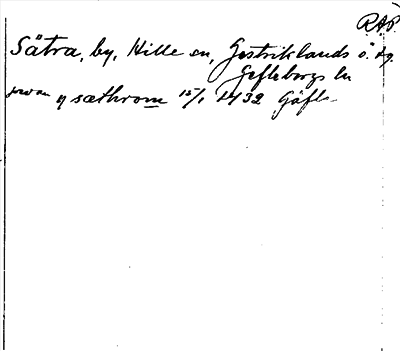 RAP.
Sätra, by, Hille sn, Gestriklands ö. dg.
Gefleborgs ln
jowan y sæthrom 15/1 1432 Gäfle